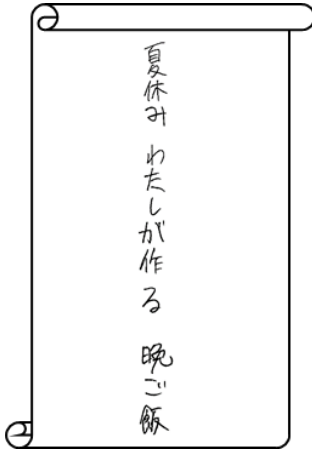 夏休み わたしが作る 晩ご飯